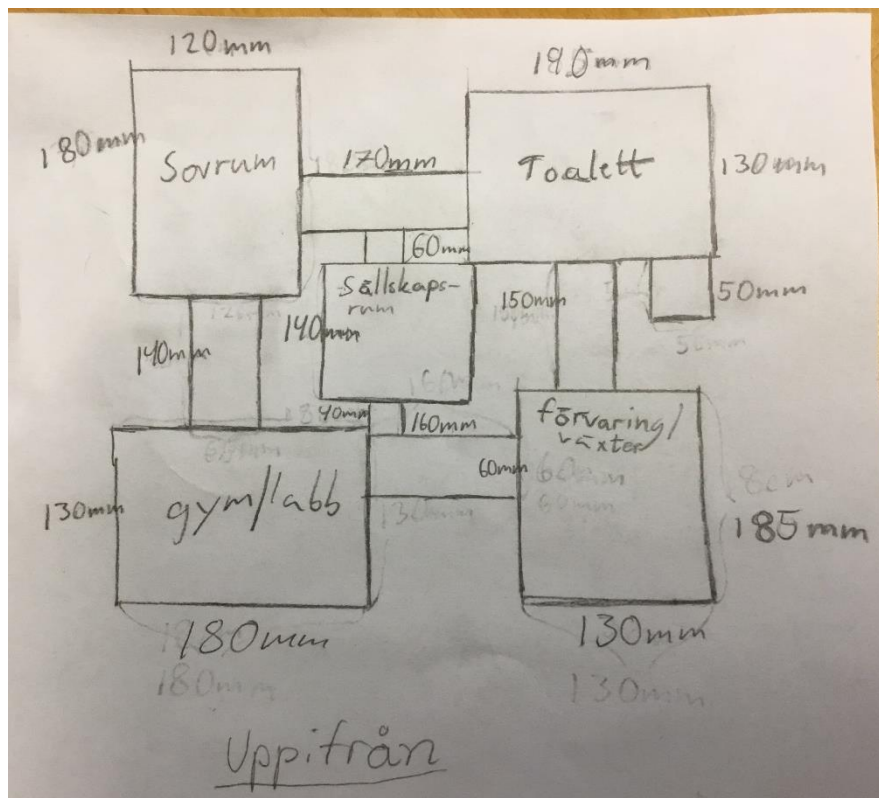 120mm
190mm
180mm
Sovrum
170mm
Toalett
130mm
60mm
Sällskaps-
rum
150mm
50mm
140mm
140mm
40mm
160mm
förvaring/
växter
60mm
130mm
gym/labb
185mm
180mm
130mm
180mm
130mm
Uppifrån